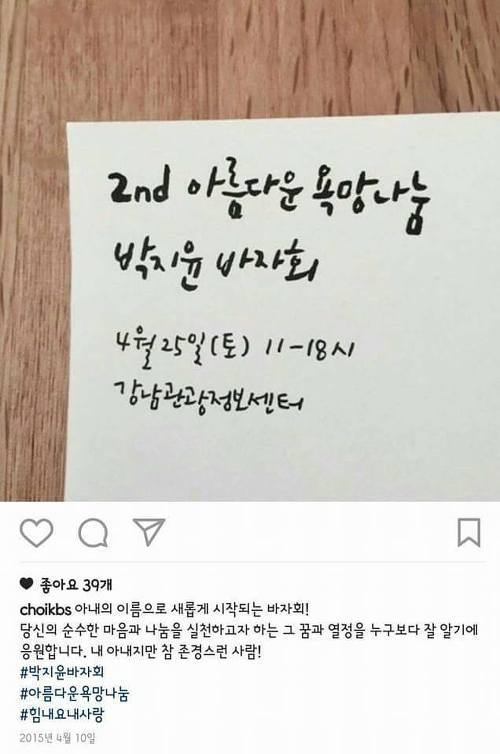 2nd 아름다운 욕망나눔
박지윤 바자회
4월 25일(토) 11-18시
강남관광정보센터
좋아요 39개
choikbs 아내의 이름으로 새롭게 시작되는 바자회!
당신의 순수한 마음과 나눔을 실천하고자 하는 그 꿈과 열정을 누구보다 잘 알기에
응원합니다. 내 아내지만 참 존경스런 사람!
#박지윤바자회
#아름다운욕망나눔
#힘내요내사랑
2015년 4월 10일